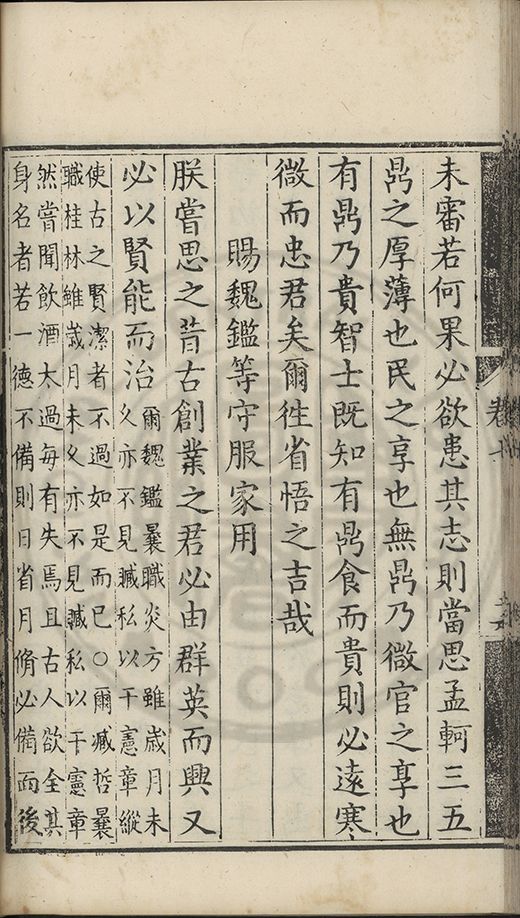 未審若何果必欲患其志則當思孟軻三五
鼎之厚薄也民之享也無鼎乃微官之享也
有鼎乃貴智士既知有鼎食而貴則必遠寒
微而忠君矣爾徃省悟之吉哉
賜魏鑑等守服家用
朕嘗思之昔古創業之君必由群英而興又
必以賢能而治
爾魏鑑曩職炎方雖歲月未
久亦不見贓私以干憲章縱
使古之賢潔者不過如是而已○爾臧哲曩
職桂林雖歲月未久亦不見贓私以干憲章
然嘗聞飲酒太過每有失焉且古人欲全其
身名者若一德不備則日省月脩必備而後
卷十